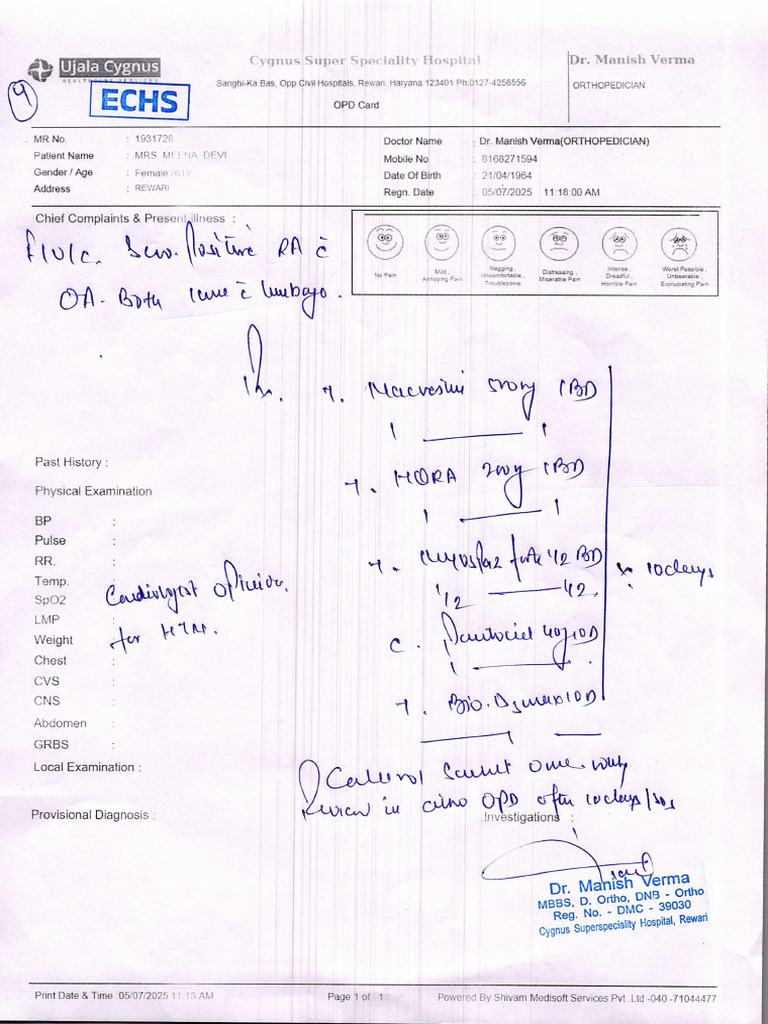 Ujala Cygnus
HEALTHCARE SERVICES
Cygnus Super Speciality Hospital
Dr. Manish Verma
Sanghi-Ka Bas, Opp.Civil Hospitals, Rewari, Haryana 123401 Ph:0127-4256556
ORTHOPEDICIAN
9
ECHS
OPD Card
MR No. : 1931728
Doctor Name : Dr. Manish Verma(ORTHOPEDICIAN)
Patient Name : MRS. MEENA DEVI
Mobile No : 8168271594
Gender / Age : Female /61Y
Date Of Birth : 21/04/1964
Address : REWARI
Regn. Date : 05/07/2025 11:18:00 AM
Chief Complaints & Present illness :
No Pain
Mild, Annoying Pain
Nagging, Uncomfortable, Troublesome
Distressing, Miserable Pain
Intense, Dreadful, Horrible Pain
Worst Possible, Unbearable, Excruciating Pain
Sero. Positive RA c̄
OA. Both knee c̄ lumbago.
T. 500mg 1BD
1 — 1
Past History :
T. HQRA 200mg 1BD
1 — 1
Physical Examination
BP :
Pulse :
T. Myospaz forte 1/2 BD
x 10 days
RR. :
Temp. :
Cardiologist opinion
1/2 — 1/2
SpO2 :
for HTN.
LMP :
C. 40mg OD
Weight :
1 — .
Chest :
CVS :
T. Bio. OD
CNS :
— 1 —
Abdomen :
GRBS :
Local Examination :
sachet once
Review in OPD after 10 days/SOS
Provisional Diagnosis :
Investigations :
Dr. Manish Verma
MBBS, D. Ortho, DNB - Ortho
Reg. No. - DMC - 39030
Cygnus Superspeciality Hospital, Rewari
Print Date & Time :05/07/2025 11:18 AM
Page 1 of 1
Powered By Shivam Medisoft Services Pvt .Ltd -040 -71044477